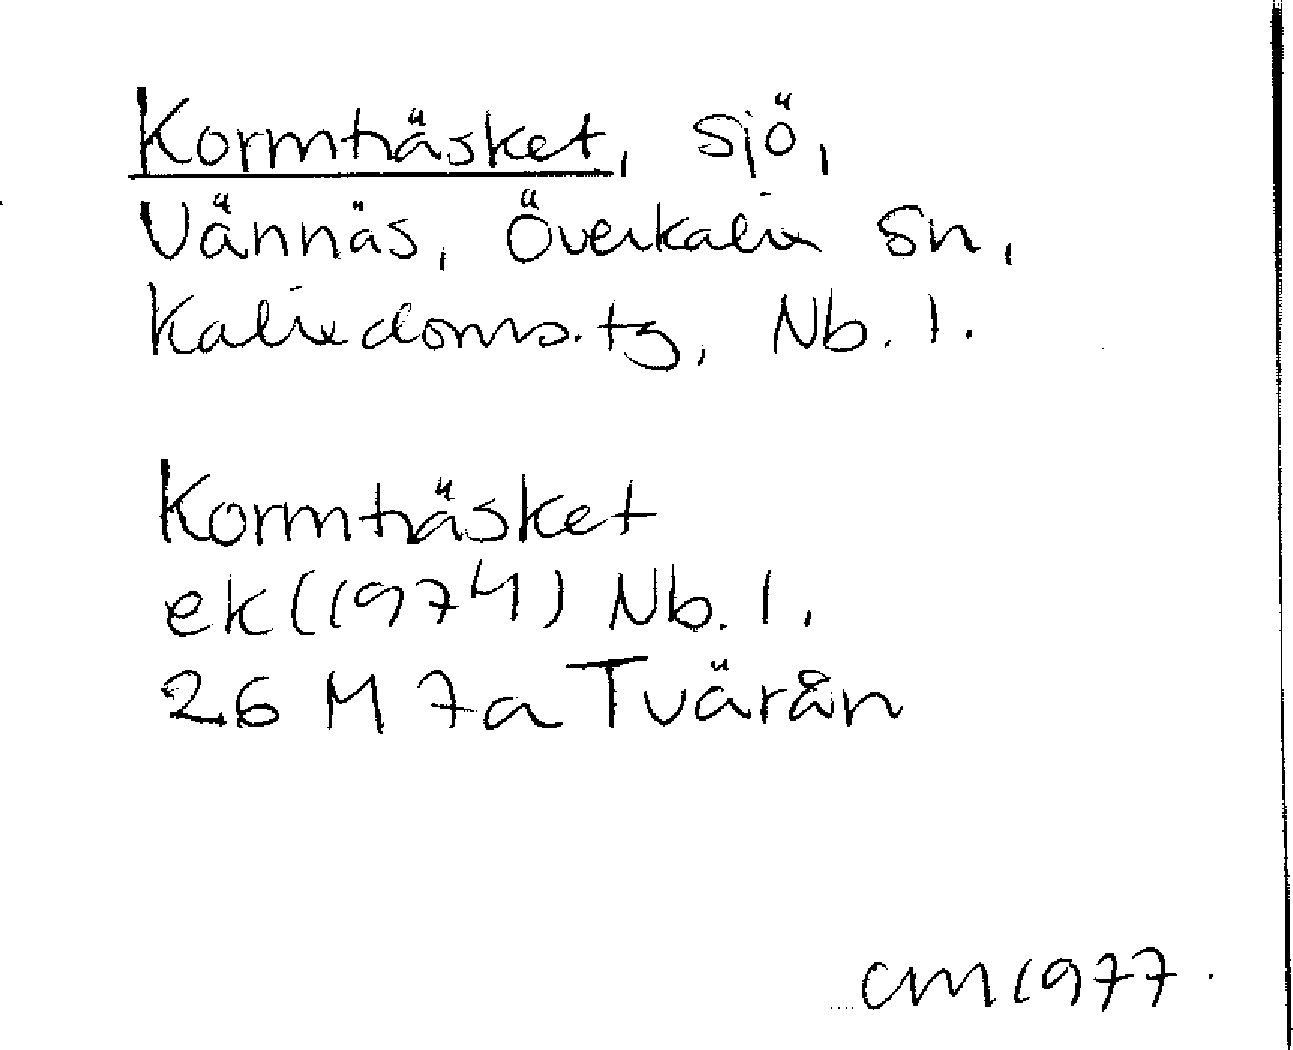 Kormträsket, sjö,
Vännäs, Överkalix sn,
Kalixdoms.tg, Nb. l.
Kormträsket
ek (1974) Nb. l.
26 M 7a Tvärån
CM 1977.